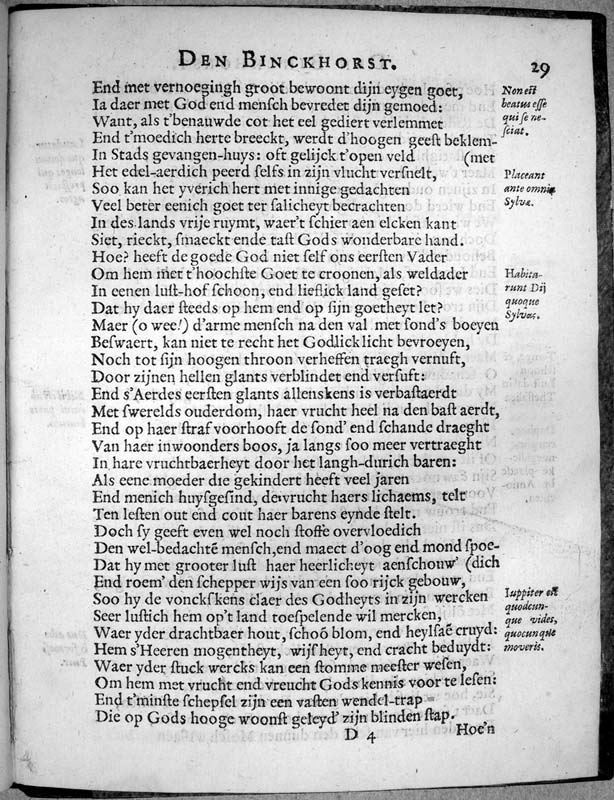 DEN BINCKHORST. 29
End met vernoegingh groot bewoont dijn eygen goet,
Ia daer met God end mensch bevredet dijn gemoed:
Want, als t'benauwde cot het eel gediert verlemmet
End t'moedich herte breeckt, werdt d'hoogen geest beklem-
In Stads gevangen-huys: oft gelijck t'open veld (met
Het edel-aerdich peerd selfs in zijn vlucht versnelt,
Soo kan het yverich hert met innige gedachten
Veel beter eenich goet ter salicheyt betrachten
In des lands vrije ruymt, waer't schier aen elcken kant
Siet, rieckt, smaeckt ende tast Gods wonderbare hand.
Hoe? heeft de goede God niet self ons eersten Vader
Om hem met t'hoochste Goet te croonen, als weldader
In eenen lust-hof schoon, end lieflick land geset?
Dat hy daer steeds op hem end op sijn goetheyt let?
Maer (o wee!) d'arme mensch na den val met sond's boeyen
Beswaert, kan niet te recht het Godlick licht bevroeyen,
Noch tot sijn hoogen throon verheffen traegh vernuft,
Door zijnen hellen glants verblindet end versuft:
End s'Aerdes eersten glants allenskens is verbastaerdt
Met swerelds ouderdom, haer vrucht heel na den bast aerdt,
End op haer straf voorhooft de sond' end schande draeght
Van haer inwoonders boos, ja langs soo meer vertraeght
In hare vruchtbaerheyt door het langh-durich baren:
Als eene moeder die gekindert heeft veel jaren
End menich huysgesind, de vrucht haers lichaems, telt
Ten lesten out end cout haer barens eynde stelt.
Doch sy geeft even wel noch stoffe overvloedich
Den wel-bedachtē mensch, end maect d'oog end mond spoe-
Dat hy met grooter lust haer heerlicheyt aenschouw' (dich
End roem' den schepper wijs van een soo rijck gebouw,
Soo hy de vonckskens claer des Godheyts in zijn wercken
Seer lustich hem op't land toespelende wil mercken,
Waer yder drachtbaer hout, schoō blom, end heylsaē cruyd:
Hem s'Heeren mogentheyt, wijsheyt, end cracht beduydt:
Waer yder stuck wercks kan een stomme meester wesen,
Om hem met vrucht end vreucht Gods kennis voor te lesen:
End t'minste schepsel zijn een vasten wendel-trap
Die op Gods hooge woonst geleyd' zijn blinden stap.
D 4 Hoe'n
Non est
beatus esse
qui se ne-
sciat.
Placeant
ante omnia
Sylvæ.
Habita-
runt Dij
quoque
Sylvas.
Iuppiter est
quodcun-
que vides,
quocunque
moveris.